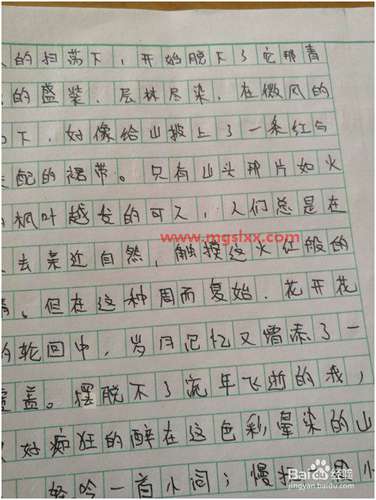 的扫荡下，开始脱下了它那青
的盛装．层林尽染．在微风的
下，好像给山披上了一条红与
配的裙带。只有山头那片如火
枫叶越发的可人，人们总是在
www.mgslxx.com
去亲近自然，触摸这火红般的
但在这种周而复始．花开花
轮回中，岁月记忆又增添了一
盖。摆脱不了流年飞逝的我，
好痴狂的醉在这色彩晕染的山
吟一首小词；慢
Baidu 经验
jingyan.baidu.com